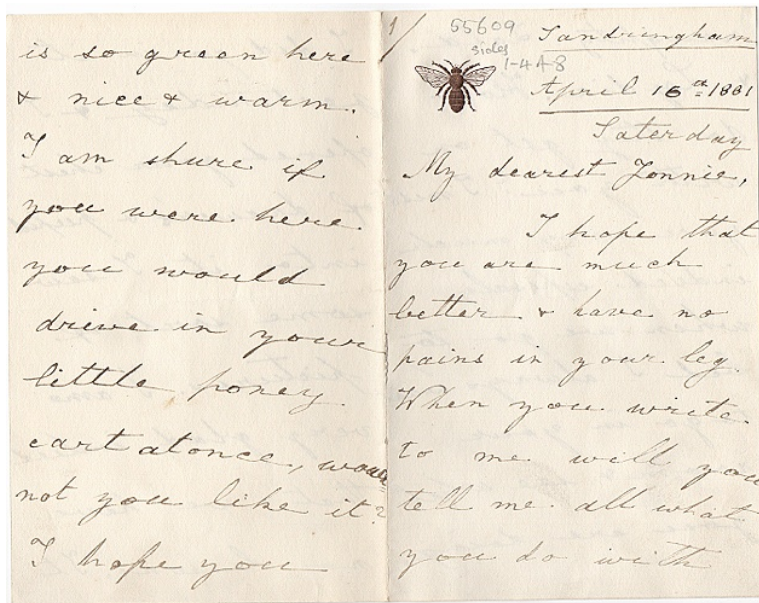 is so green here
& nice & warm.
I am shure if
you were here
you would
drive in your
little poney
cart atonce, would
not you like it?
I hope you
1/
55609
sides
1-4 & 8
Sandringham
April 16th 1881
Saterday
My dearest Tonnie,
I hope that
you are much
better & have no
pains in your leg.
When you write
to me will you
tell me all what
you do with